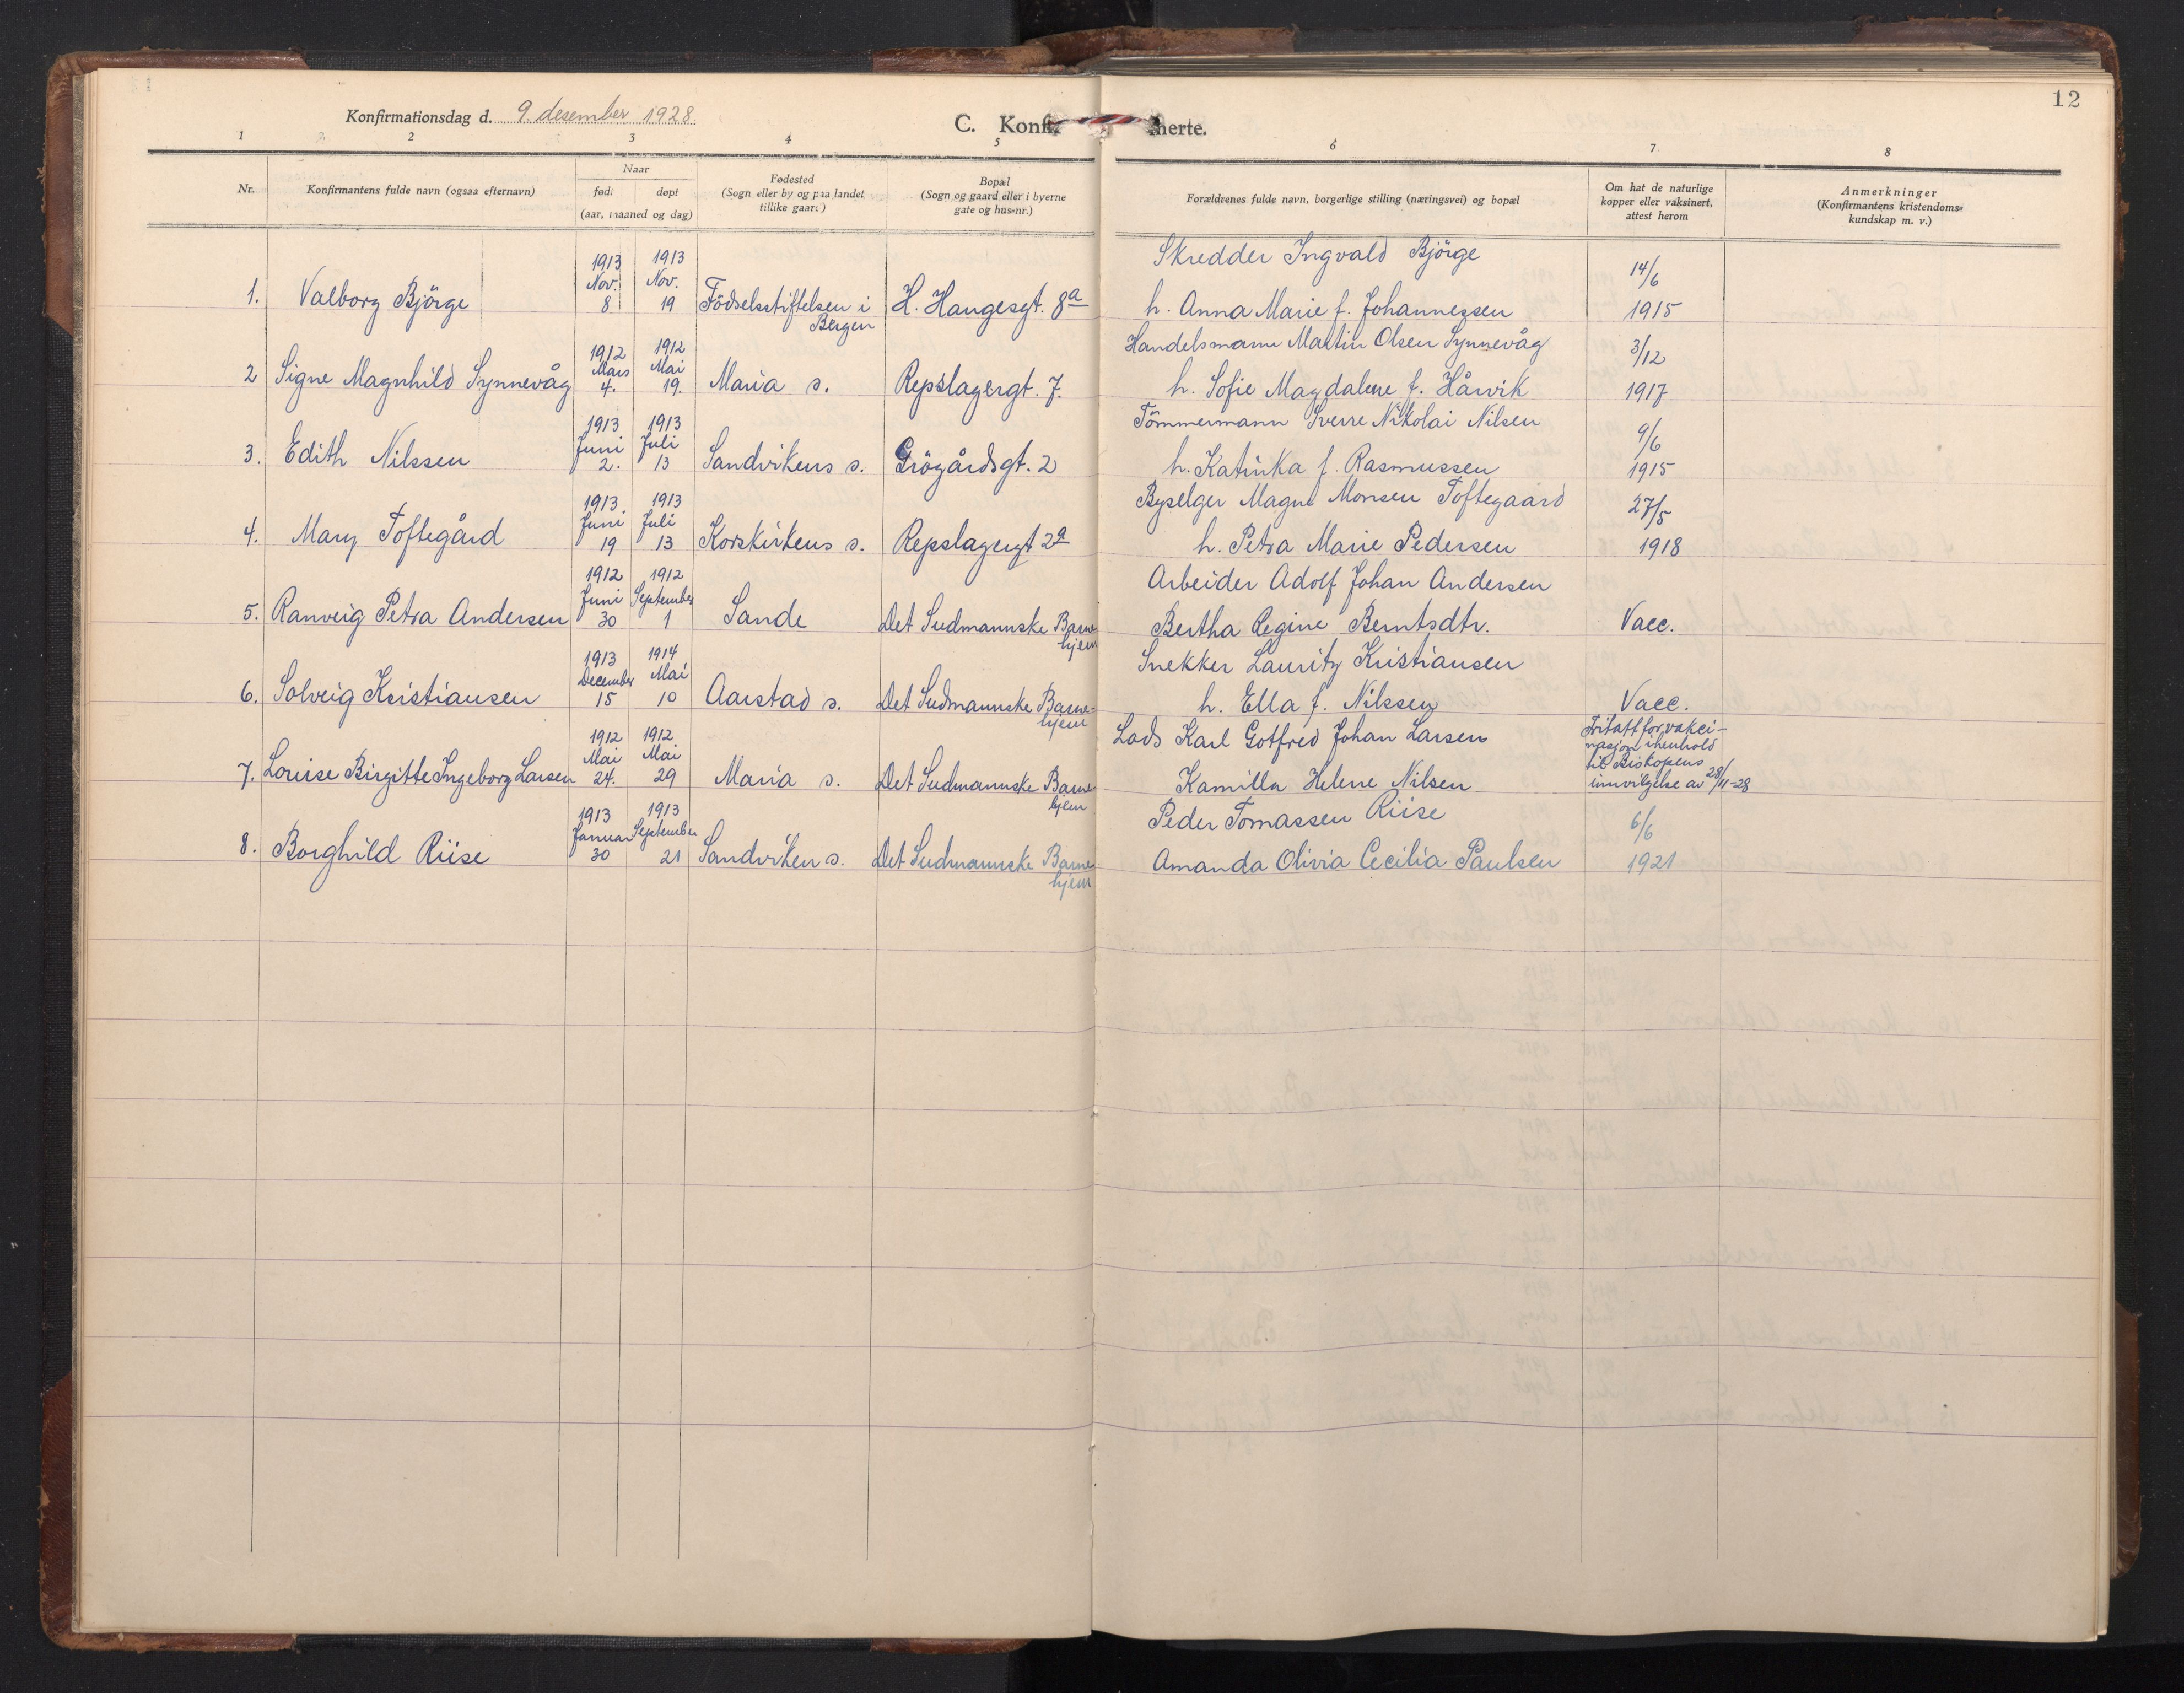 12
Konfirmationsdag d. 9. desember 1928.
C. Konfir merte.
1 2 3 4 5 6 7 8
Nr.
Konfirmantens fulde navn (ogsaa efternavn)
Naar
fød: døpt
(aar, maaned og dag)
Fødested
(Sogn eller by og paa landet
tillike gaard)
Bopæl
(Sogn og gaard eller i byerne
gate og hus-nr.)
Forældrenes fulde navn, borgerlige stilling (næringsvei) og bopæl
Om hat de naturlige
kopper eller vaksinert,
attest herom
Anmerkninger
(Konfirmantens kristendoms-
kundskap m. v.)
1913 1913 Skredder Ingvald Björge 14/6
Nov. Nov.
1. Valborg Björge 8 19 Födselsstiftelsen i H. Haugesgt. 8a h. Anna Marie f. Johannessen 1915
Bergen
1912 1912 Handelsmann Martin Olsen Synnevåg 3/12
Mars Mai
2 Signe Magnhild Synnevåg 4. 19. Maria s. Repslagergt. 7. h. Sofie Magdalene f. Hårvik 1917
1913 1913 Tömmermann Sverre Nikolai Nilsen 9/6
Juni Juli
3. Edith Nilssen 2. 13 Sandvikens s. Grögårdsgt. 2 h. Katinka f. Rasmussen 1915
1913. 1913 Byselger Magne Monsen Toftegaard 27/5
Juni Juli
4. Mary Toftegård 19 13 Korskirkens s. Repslagergt 2a h. Petra Marie Pedersen 1918
1912 1912 Arbeider Adolf Johan Andersen
Juni September
5. Ranveig Petra Andersen 30 1 Sande Det Sudmannske Barne Bertha Regine Berntsdtr. Vacc.
hjem
1913 1914 Snekker Lauritz Kristiansen
December Mai
6. Solveig Kristiansen 15 10 Aarstad s. Det Sudmannske Barne- h. Ella f. Nilssen Vacc.
hjem
1912 1912 Lods Karl Gotfred Johan Larsen Fritatt for vakci-
Mai Mai nasjon i henhold
til Biskopens
7. Louise Birgitte Ingeborg Larsen 24. 29 Maria s. Det Sudmannske Barne Kamilla Helene Nilsen innvilgelse av 28/11-28
hjem
1913 1913 Peder Tomassen Riise 6/6
Januar September
8. Borghild Riise 30 21 Sandviken s. Det Sudmannske Barne Amanda Olivia Cecilia Paulsen 1921
hjem